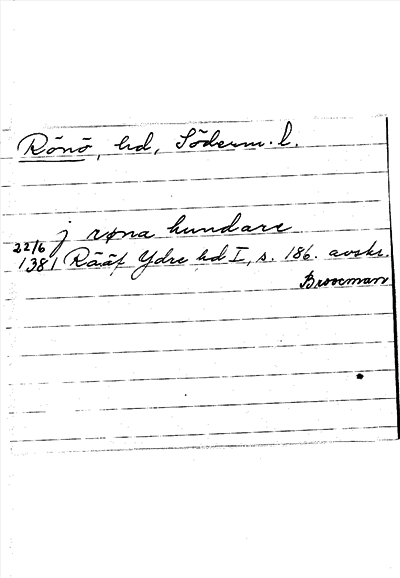 Rönö, hd, Söderm. l.
j røna hundare
22/6
1381 Rääf Ydre hd I, s. 186. avskr.
Broocman